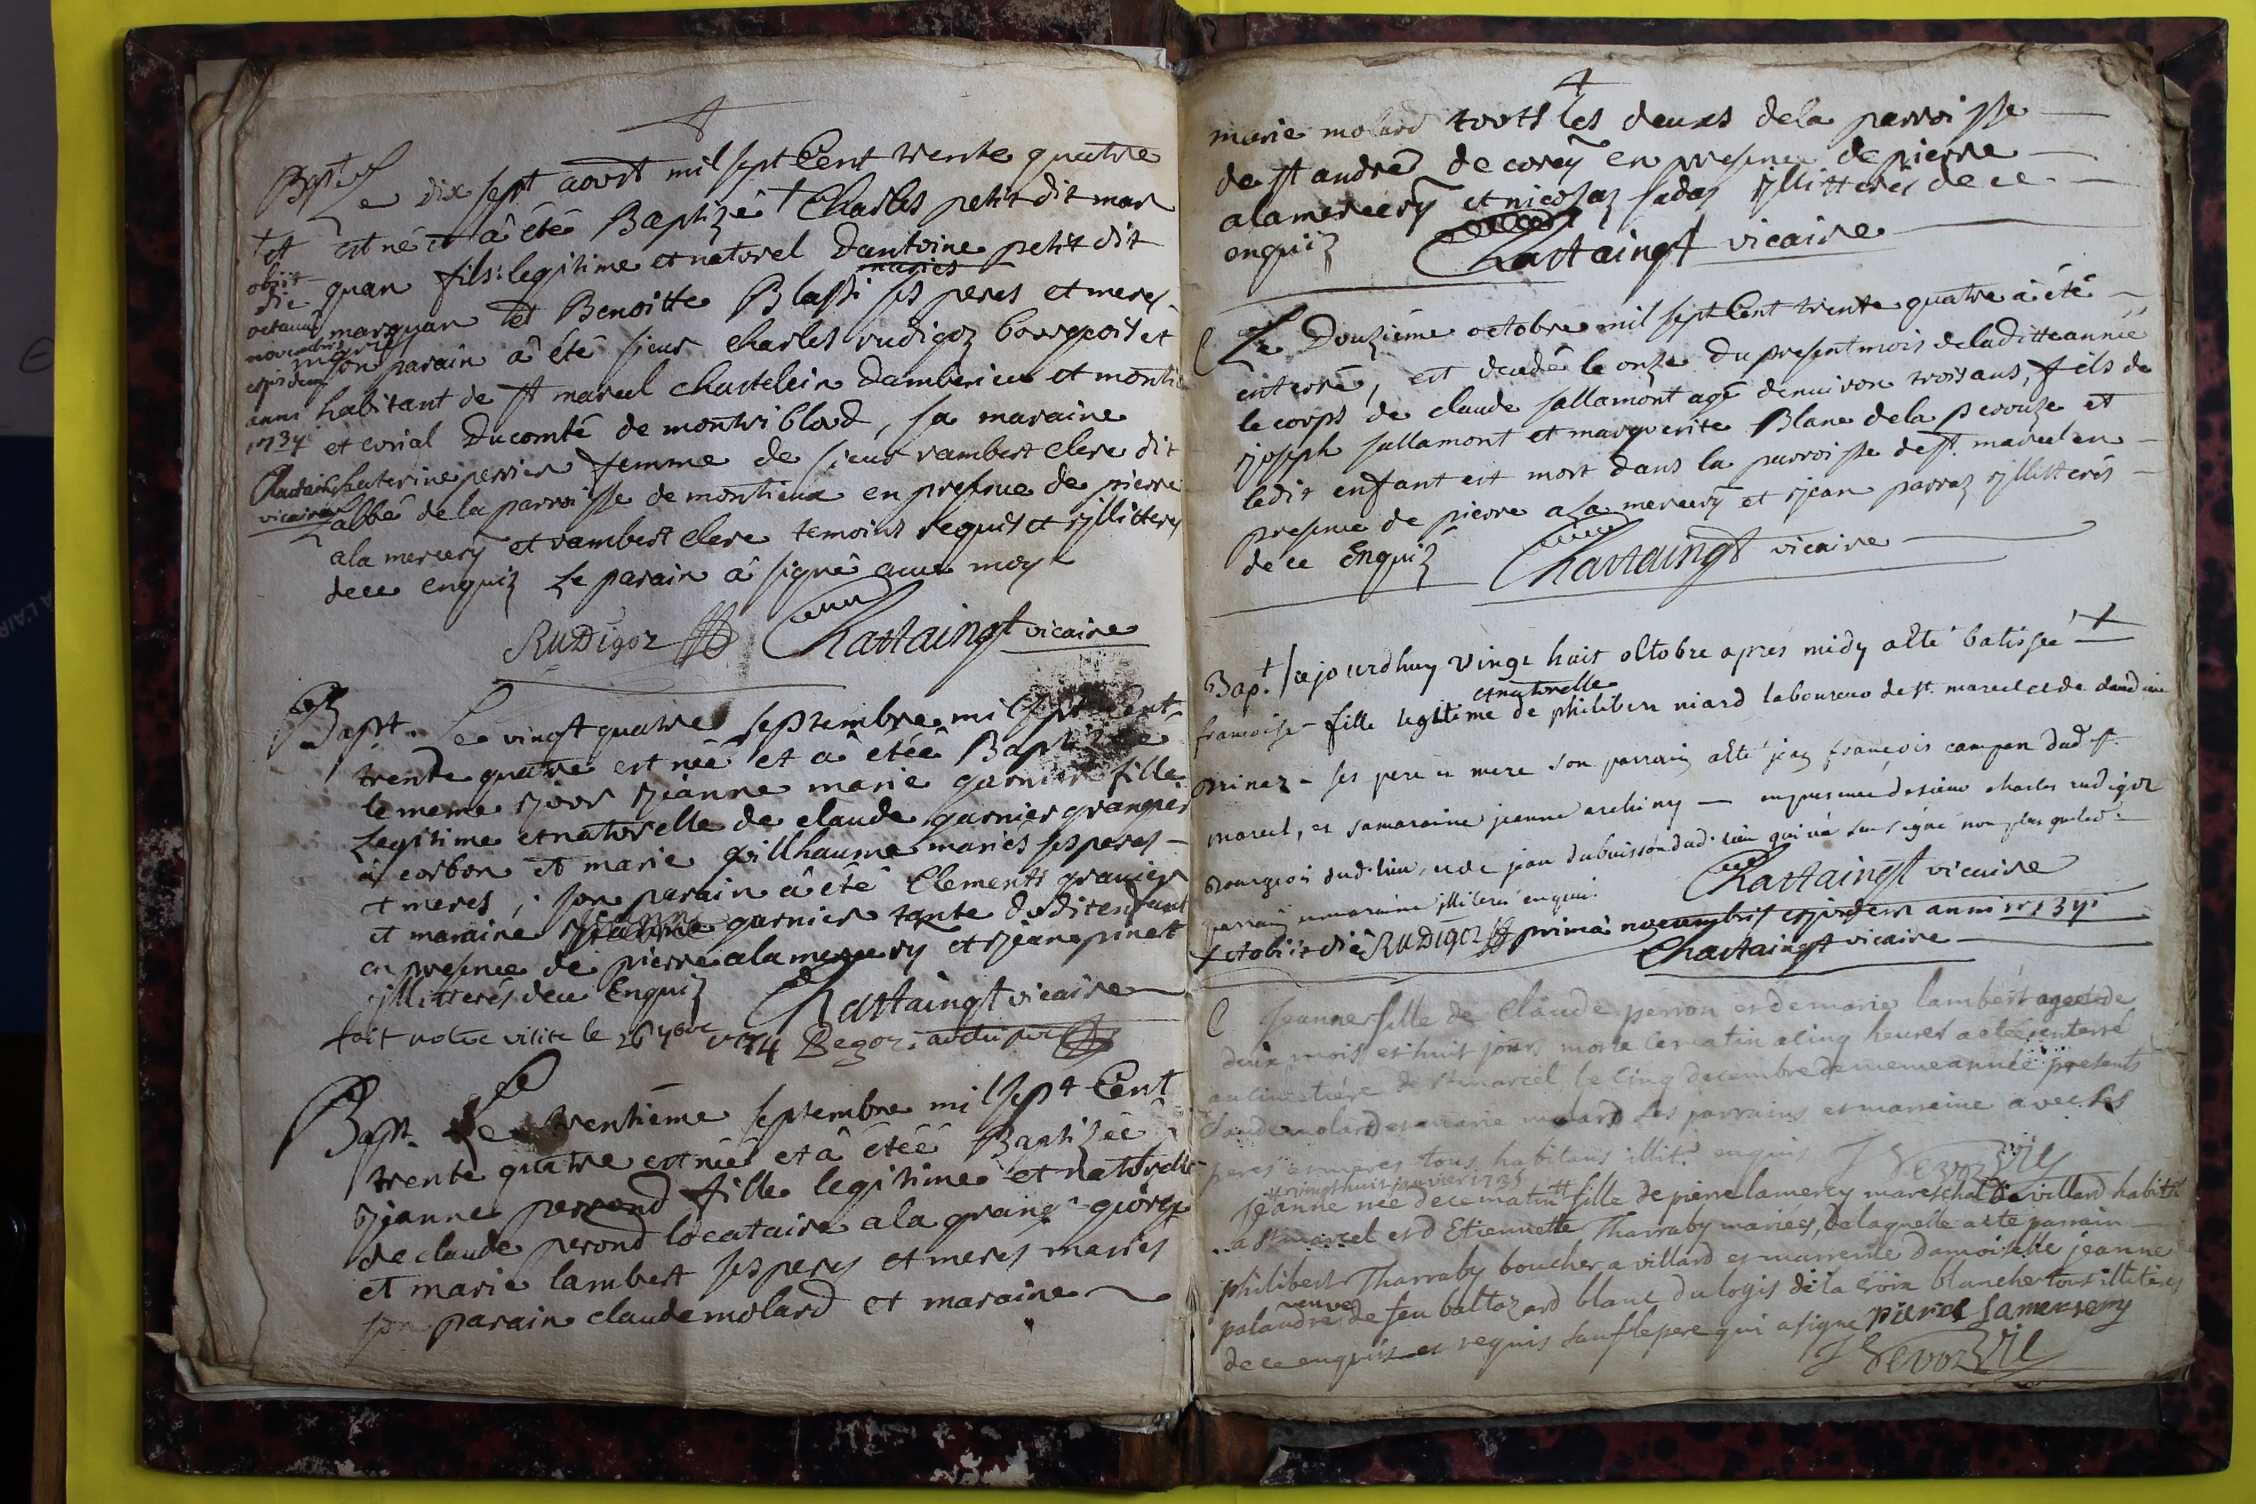 Bapt. Le dix sept aoust mil sept Cent trente quatre
est né et â été Baptizé † Charles petit dit mar
quan fils legitime et naturel Dantoine petit dit
mariés
marquan et Benoitte Blassi ses peres et meres
son parain â été sieur Charles rudigoz bourgeois et
habitant de st marcel chastelein Damberieu et montie
et corial Du comté de montriblod, sa maraine
Catherine perrier femme de sieur rambert clere dit
l'abbé de la parroisse de montieux en presence de pierre
ala mercery et rambert clere temoins requis et illitteres
de ce enquiz Le parain â signé avec moy
† et
obiit
die
octava
novembris
ejusdem
anni
1734
Chattaingt
vicaire
RUDigoz Chattaingt vicaire
Bapt. Le vingt quatre septembre mil sept Cent
trente quatre est née et a étéé Baptizée
le meme jour jeanne marie garnier fille
Legitime et naturelle de claude garnier granger
â corbon et marie guillhaume mariés ses peres
et meres, son parain â été Clements granier
et maraine jeanne garnier tante du dit enfant
en presence de pierre ala mercery et jean pinet
illitterés de ce Enquiz Chattaingt vicaire
fait notre visite le 26 7bre 1734 Begoz
Bapt. Le trentiéme septembre mil sept Cent
trente quatre est née et â étéé Baptizéé
jeanne perrond fille legitime et naturelle
de claude perond locataire a la grange giorge
et marie lambert ses peres et meres mariés
son parain claude molard et maraine
marie molard touts les deux de la parroisse
de st andré de corcy en presence de pierre
ala mercery et nicolaz sadaz illitterés de ce
enquiz Chattaingt vicaire
Le Douziéme octobre mil sept Cent trente quatre â été
enterré, est decedé le onze du present mois de la ditte année
le corps de claude sallamont agé denviron trois ans, fils de
joseph sallamont et marguerite Blanc de la perouze et
ledit enfant est mort dans la parroisse de st. marcel en
presence de pierre ala mercery et jean parraz illitterés
de ce Enquiz Chattaingt vicaire
Bapt. Cejourdhuy vingt huit octobre apres midy a été batissée †
et naturelle
francoise fille legitime de philibert niard laboureur de st. marcel et de claudine
prinez ses pere et mere son parrain a été jean françois campan dud st.
marcel, et sa maraine jeanne archiny en presence de sieur charles rudigoz
Bourgeois dud. lieu, et de jean dubuisson dud. lieu qui n'a sceu signé non plus que led.
parrain et maraine illiterés enquis. Chattaingt vicaire
† et obiit die RUDigoz prima novembris ejusdem anni 1734
Chattaingt vicaire
Jeanne fille de Claude perron et de marie lambert agée de
deux mois et huit jours morte ce matin a cinq heures a été enterré
au cimetiére de st marcel le cinq decembre de meme année presents
Claude molard et marie molard ses parrains et marreine avec les
peres et meres tous habitans illit. enquis J Devoz Vic
vingt huit janvier 1735
Jeanne née de ce matin fille de pierre lamercy mareschal de villard habitt
a st marcel et d Etiennette Tharraby mariés, de laquelle a été parrain
philibert Tharraby boucher a villard et marreine damoiselle jeanne
veuve
palandre de feu baltazard blanc du logis de la croix blanche tous illiterés
de ce enquis et requis sauf le pere qui a signe pierre Lamersery
J Devoz Vic